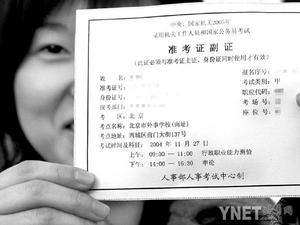 中央、国家机关2005年
录用机关工作人员和国家公务员考试
准考证副证
（此证必须与准考证主证、身份证同时使用才有效）
姓名： 报名序号：
准考证号： 考试类别：甲
身份证号： 职位代码：
考区：北京 考场：
考点：北京市外事学校(南址) 座位号：
考点地址：西城区前门大街137号
考试时间及科目：2004年11月27日
上午：09:00－11:00 行政职业能力测验
下午：14:00－16:30 申论
人事部人事考试中心制
YNET.com